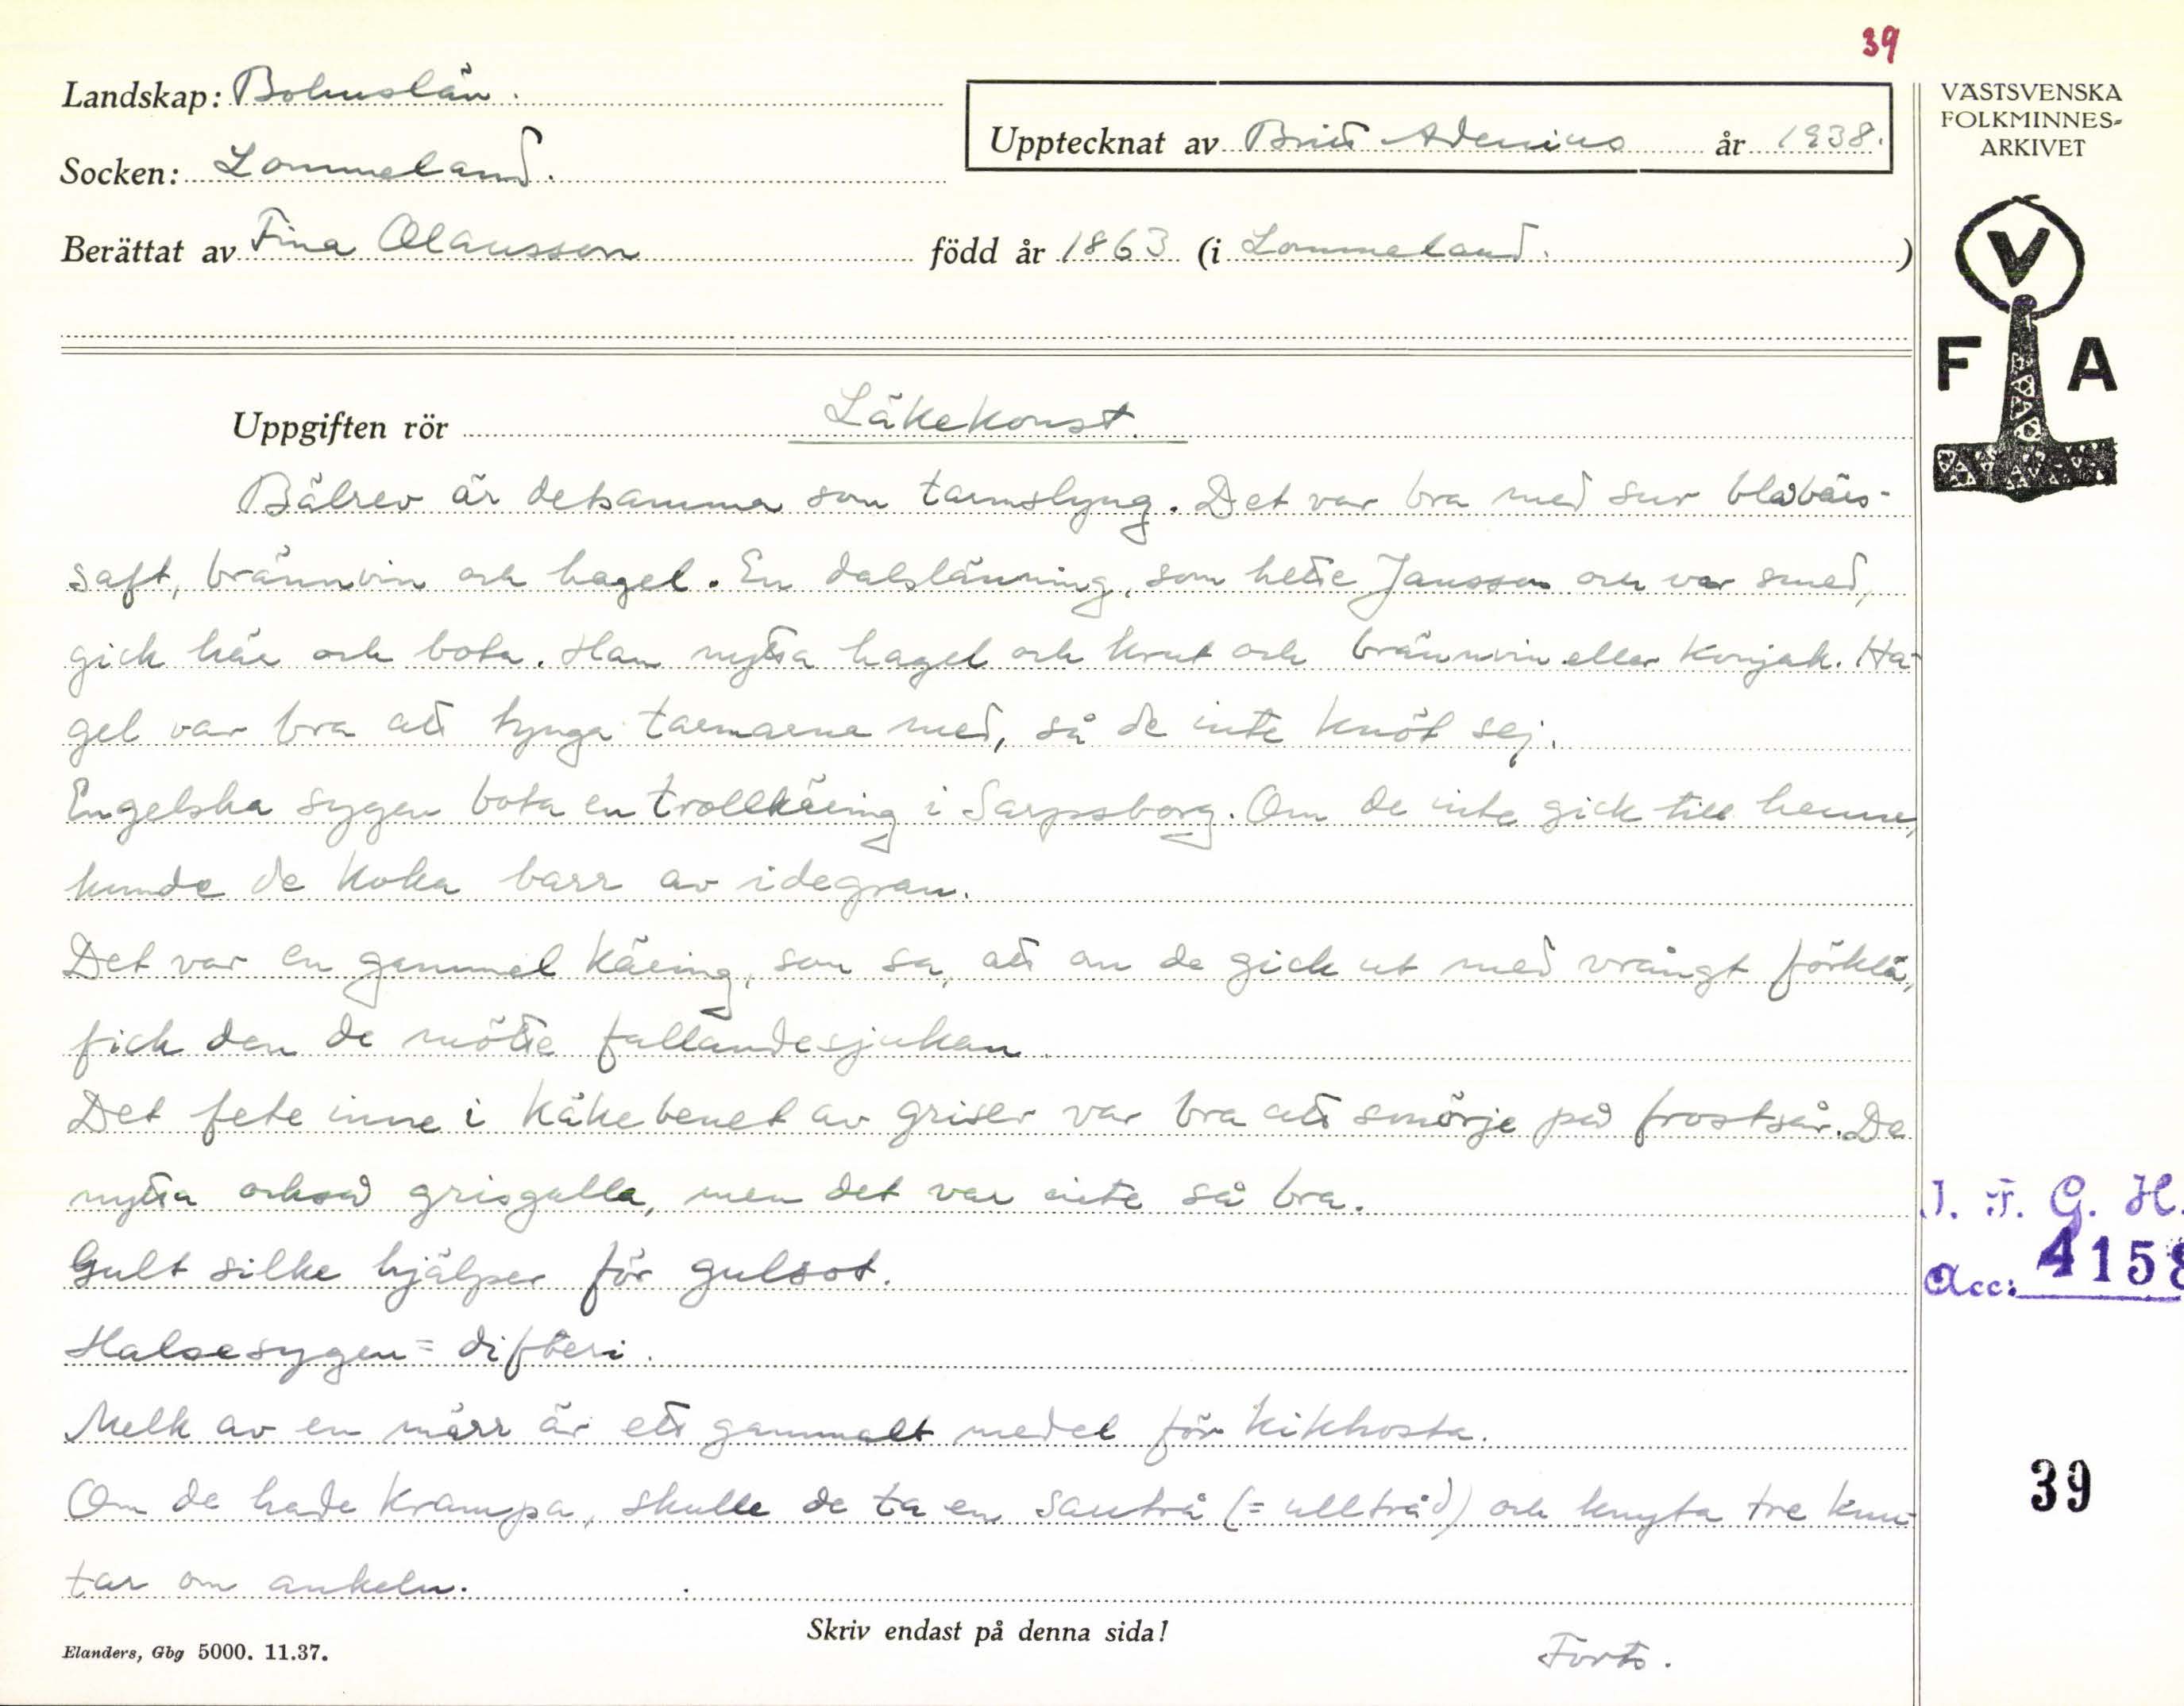 39
Landskap: Bohuslän.
Upptecknat av Britt Adenius år 1938.
Socken: Lommeland.
Berättat av Fina Olausson född år 1863 (i Lommeland.)
VÄSTSVENSKA
FOLKMINNES-
ARKIVET
V
F A
Uppgiften rör Läkekonst.
Bälrev är detsamma som tarmslyng. Det var bra med sur blåbärs-
saft, brännvin och hagel. En dalslänning, som hette Jansson och var smed,
gick här och bota. Han nytta hagel och krut och brännvin eller konjak. Ha-
gel var bra att tynga tarmarna med, så de inte knöt sej.
Engelska sygen bota en trollkäring i Sarpsborg. Om de inte gick till henne,
kunde de koka barr av idegran.
Det var en gammel käring, som sa, att om de gick ut med vrångt förklä,
fick den de mötte fallandesjukan.
Det fete inne i käkebenet av griser var bra att smörje på frostsår. De
nytta också grisgalla, men det var inte så bra.
Gult silke hjälper för gulsot.
Halsesygen = difteri.
Melk av en märr är ett gammalt medel för kikhosta.
Om de hade krampa, skulle de ta en sautrå (= ulltråd) och knyta tre knu-
tar om ankeln.
J. F. G. H.
Acc: 4158
39
Skriv endast på denna sida!
Elanders, Gbg 5000. 11.37.
Forts.